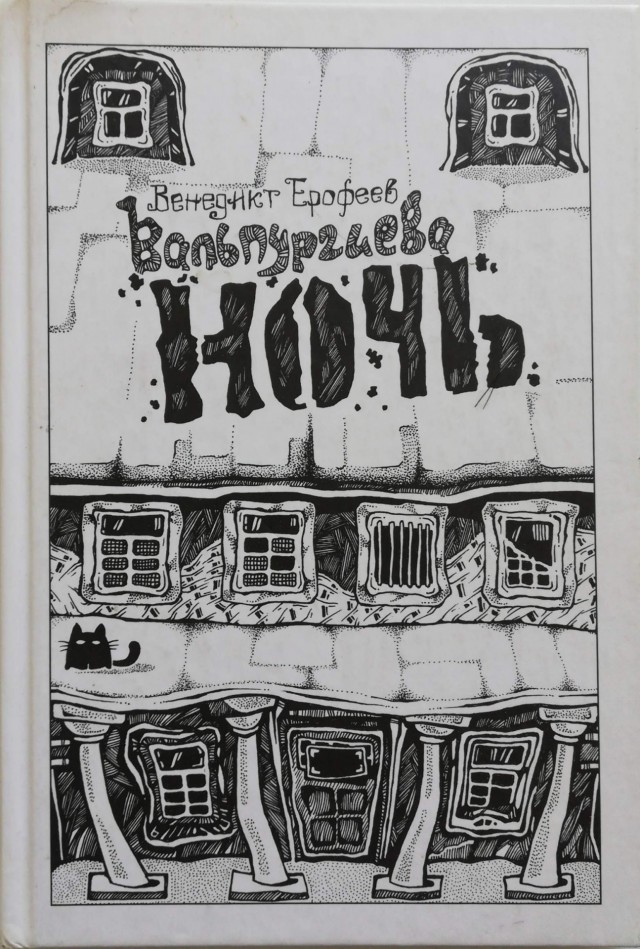 Венедикт Ерофеев
Вальпургиева
НОЧЬ